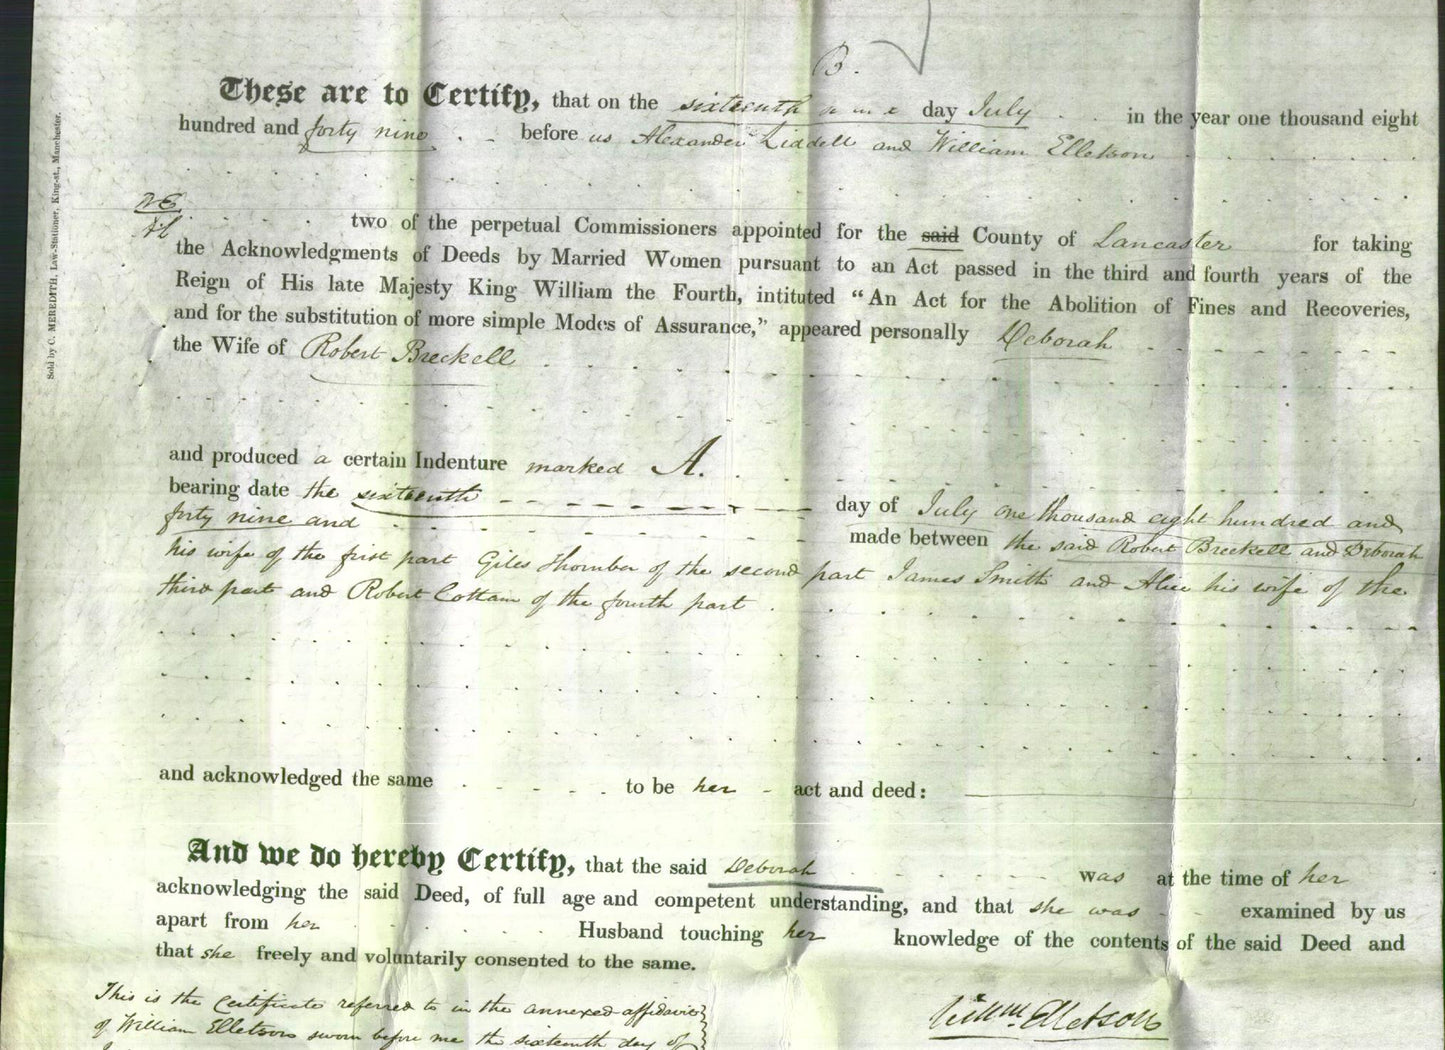 B.
These are to Certify, that on the sixteenth day July in the year one thousand eight
hundred and forty nine before us Alexander Liddell and William Elletson
WE
two of the perpetual Commissioners appointed for the said County of Lancaster for taking
the Acknowledgments of Deeds by Married Women pursuant to an Act passed in the third and fourth years of the
Reign of His late Majesty King William the Fourth, intituted “An Act for the Abolition of Fines and Recoveries,
and for the substitution of more simple Modes of Assurance,” appeared personally Deborah
the Wife of Robert Breckell
and produced a certain Indenture marked A.
bearing date the sixteenth day of July one thousand eight hundred and
forty nine and made between the said Robert Breckell and Deborah
his wife of the first part Giles Thornber of the second part James Smith and Alice his wife of the
third part and Robert Cottam of the fourth part
and acknowledged the same to be her act and deed:
And we do hereby Certify, that the said Deborah was at the time of her
acknowledging the said Deed, of full age and competent understanding, and that she was examined by us
apart from her Husband touching her knowledge of the contents of the said Deed and
that she freely and voluntarily consented to the same.
This is the Certificate referred to in the annexed affidavit
of William Elletson sworn before me the sixteenth day of
Willm. Elletson
Sold by C. MEREDITH, Law-Stationer, King-st., Manchester.